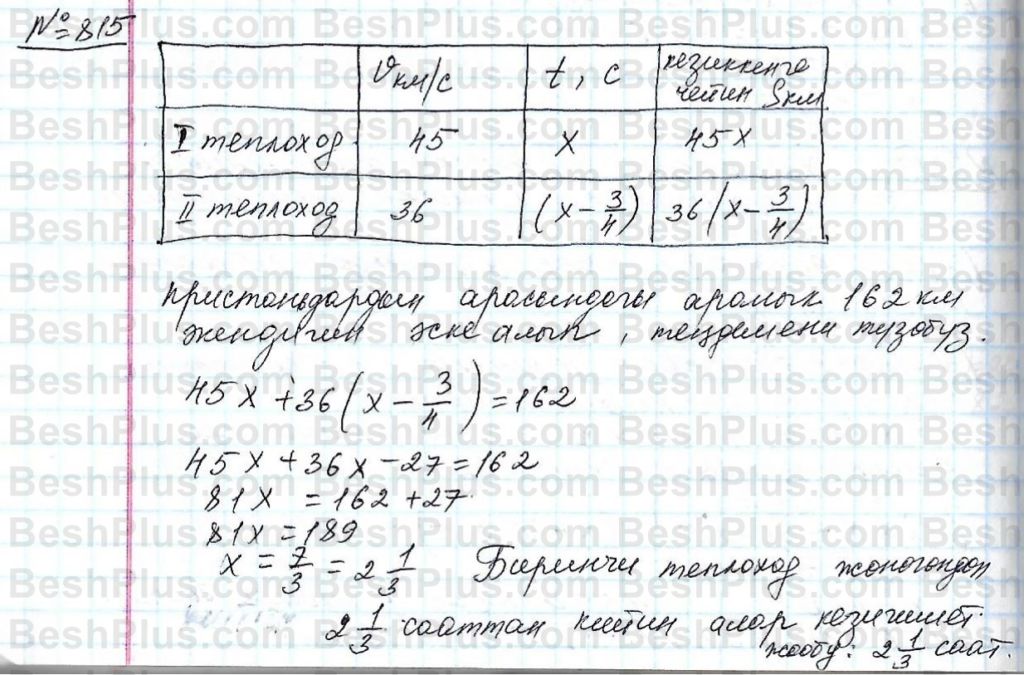 № 815
v км/с | t, с | кезиккенге чейин S км
I теплоход | 45 | x | 45x
II теплоход | 36 | (x - 3/4) | 36(x - 3/4)
Пристандардын арасындагы аралык 162 км
экендигин эске алып, теңдемени түзөбүз.
45x + 36(x - 3/4) = 162
45x + 36x - 27 = 162
81x = 162 + 27
81x = 189
x = 7/3 = 2 1/3 Биринчи теплоход жөнөгөндөн
2 1/3 сааттан кийин алар кезигишет.
Жообу: 2 1/3 саат.
BeshPlus.com